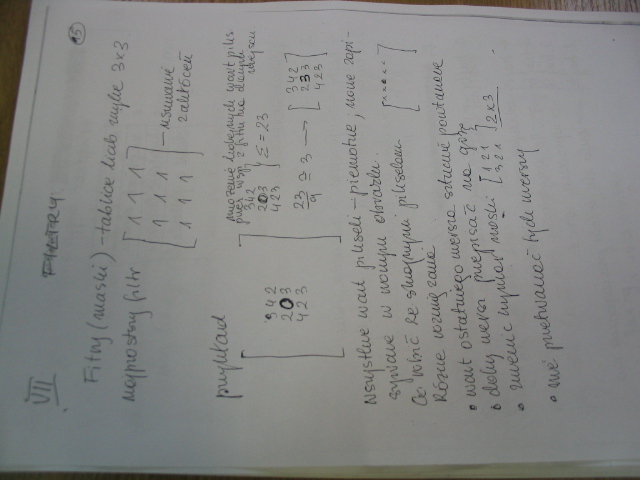 VII FILTRY 5
Filtry (maski) – tablice liczb zwykle 3x3
najprostszy filtr [1 1 1
1 1 1
1 1 1] – usuwanie zakłóceń
przykład
[3 4 2
2 0 3
4 2 3]
mnożenie kolejnych wart piks
przez wsp z filtru na danym
miejscu
3 4 2
2 0 3
4 2 3 } Σ = 23
23/9 ≅ 3 → [3 4 2
2 3 3
4 2 3]
Wszystkie wart pikseli – pierwotne, nowe zapi-
sywane w nowym obrazku.
Co robić ze skrajnymi pikselami
Różne rozwiązania
• wart ostatniego wiersza sztucznie powtarzane
• dolny wiersz przepisać na górę
• zmienić wymiar maski [1 2 1
3 2 1] 2x3
• nie przetwarzać tych wierszy